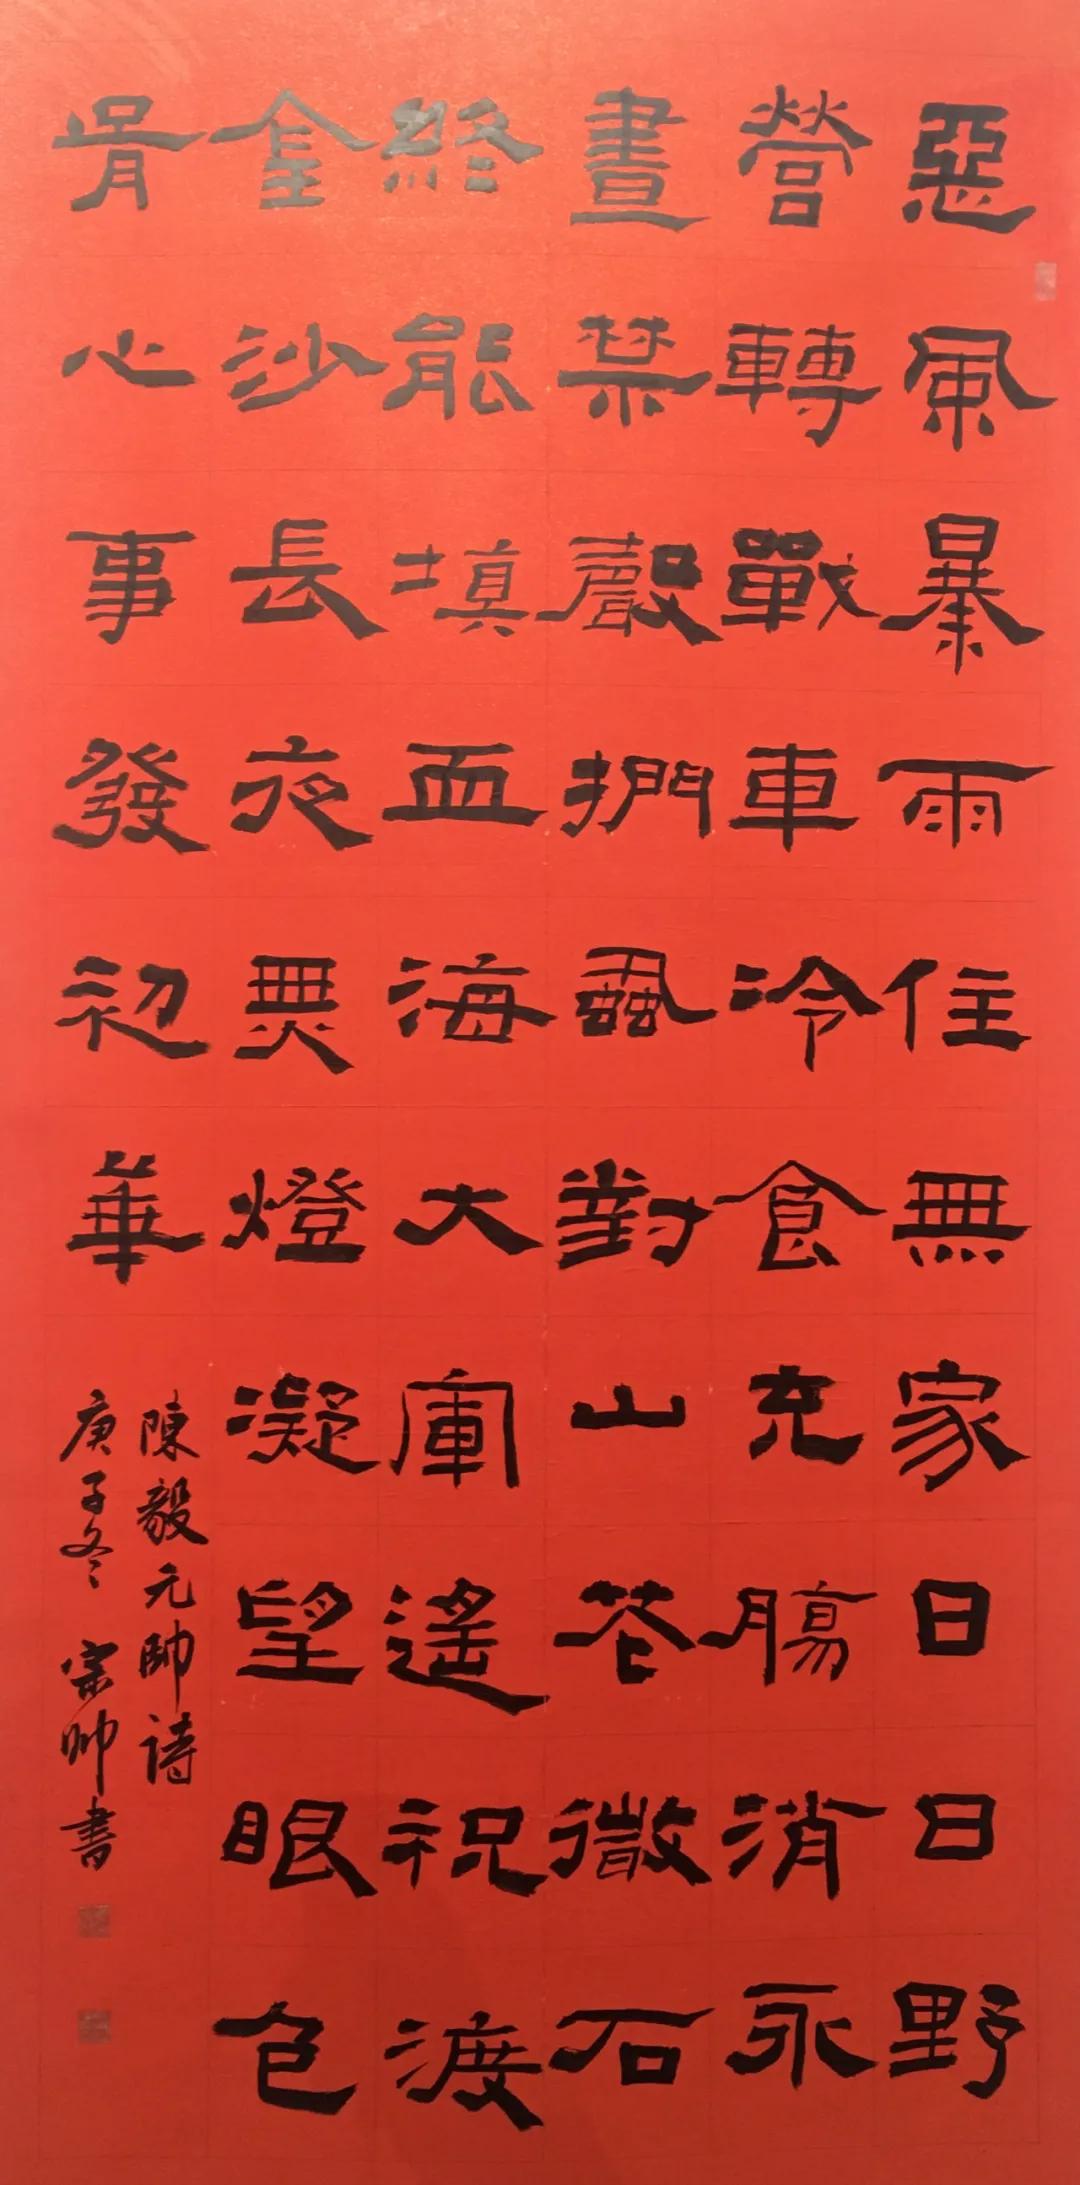 惡風暴雨住無家日日野
營轉戰車冷食充腸消永
晝禁聲捫蝨對山花微石
終能填血海大軍遙祝渡
金沙長夜無燈凝望眼包
胥心事發初華
陳毅元帥詩
庚子冬 宗帅書